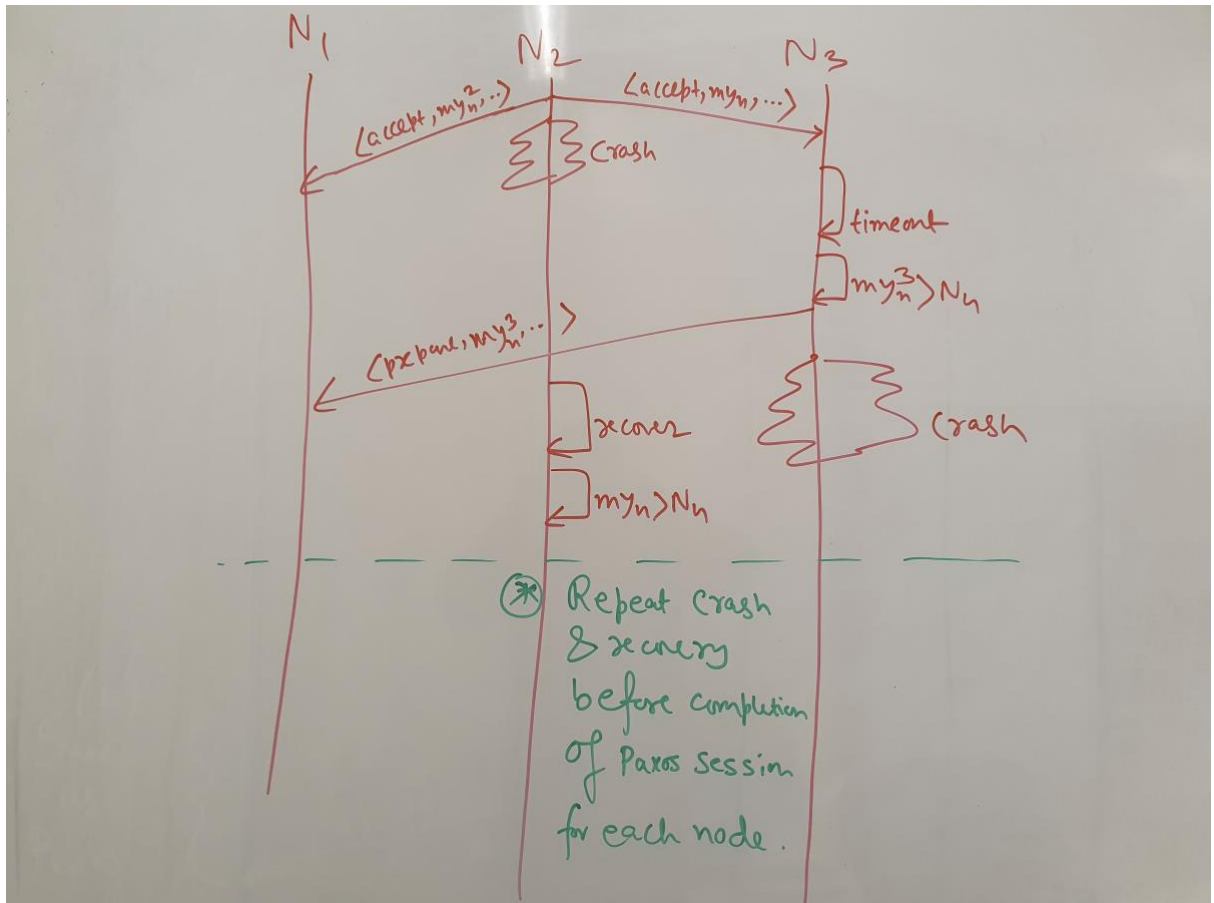 N1
N2
N3
<accept, my_n^2, ..>
<accept, my_n, ...>
Crash
timeout
my_n^3 > N_n
<prepare, my_n^3, ... >
recover
Crash
my_n > N_n
* Repeat Crash
& recovery
before completion
of Paxos session
for each node.